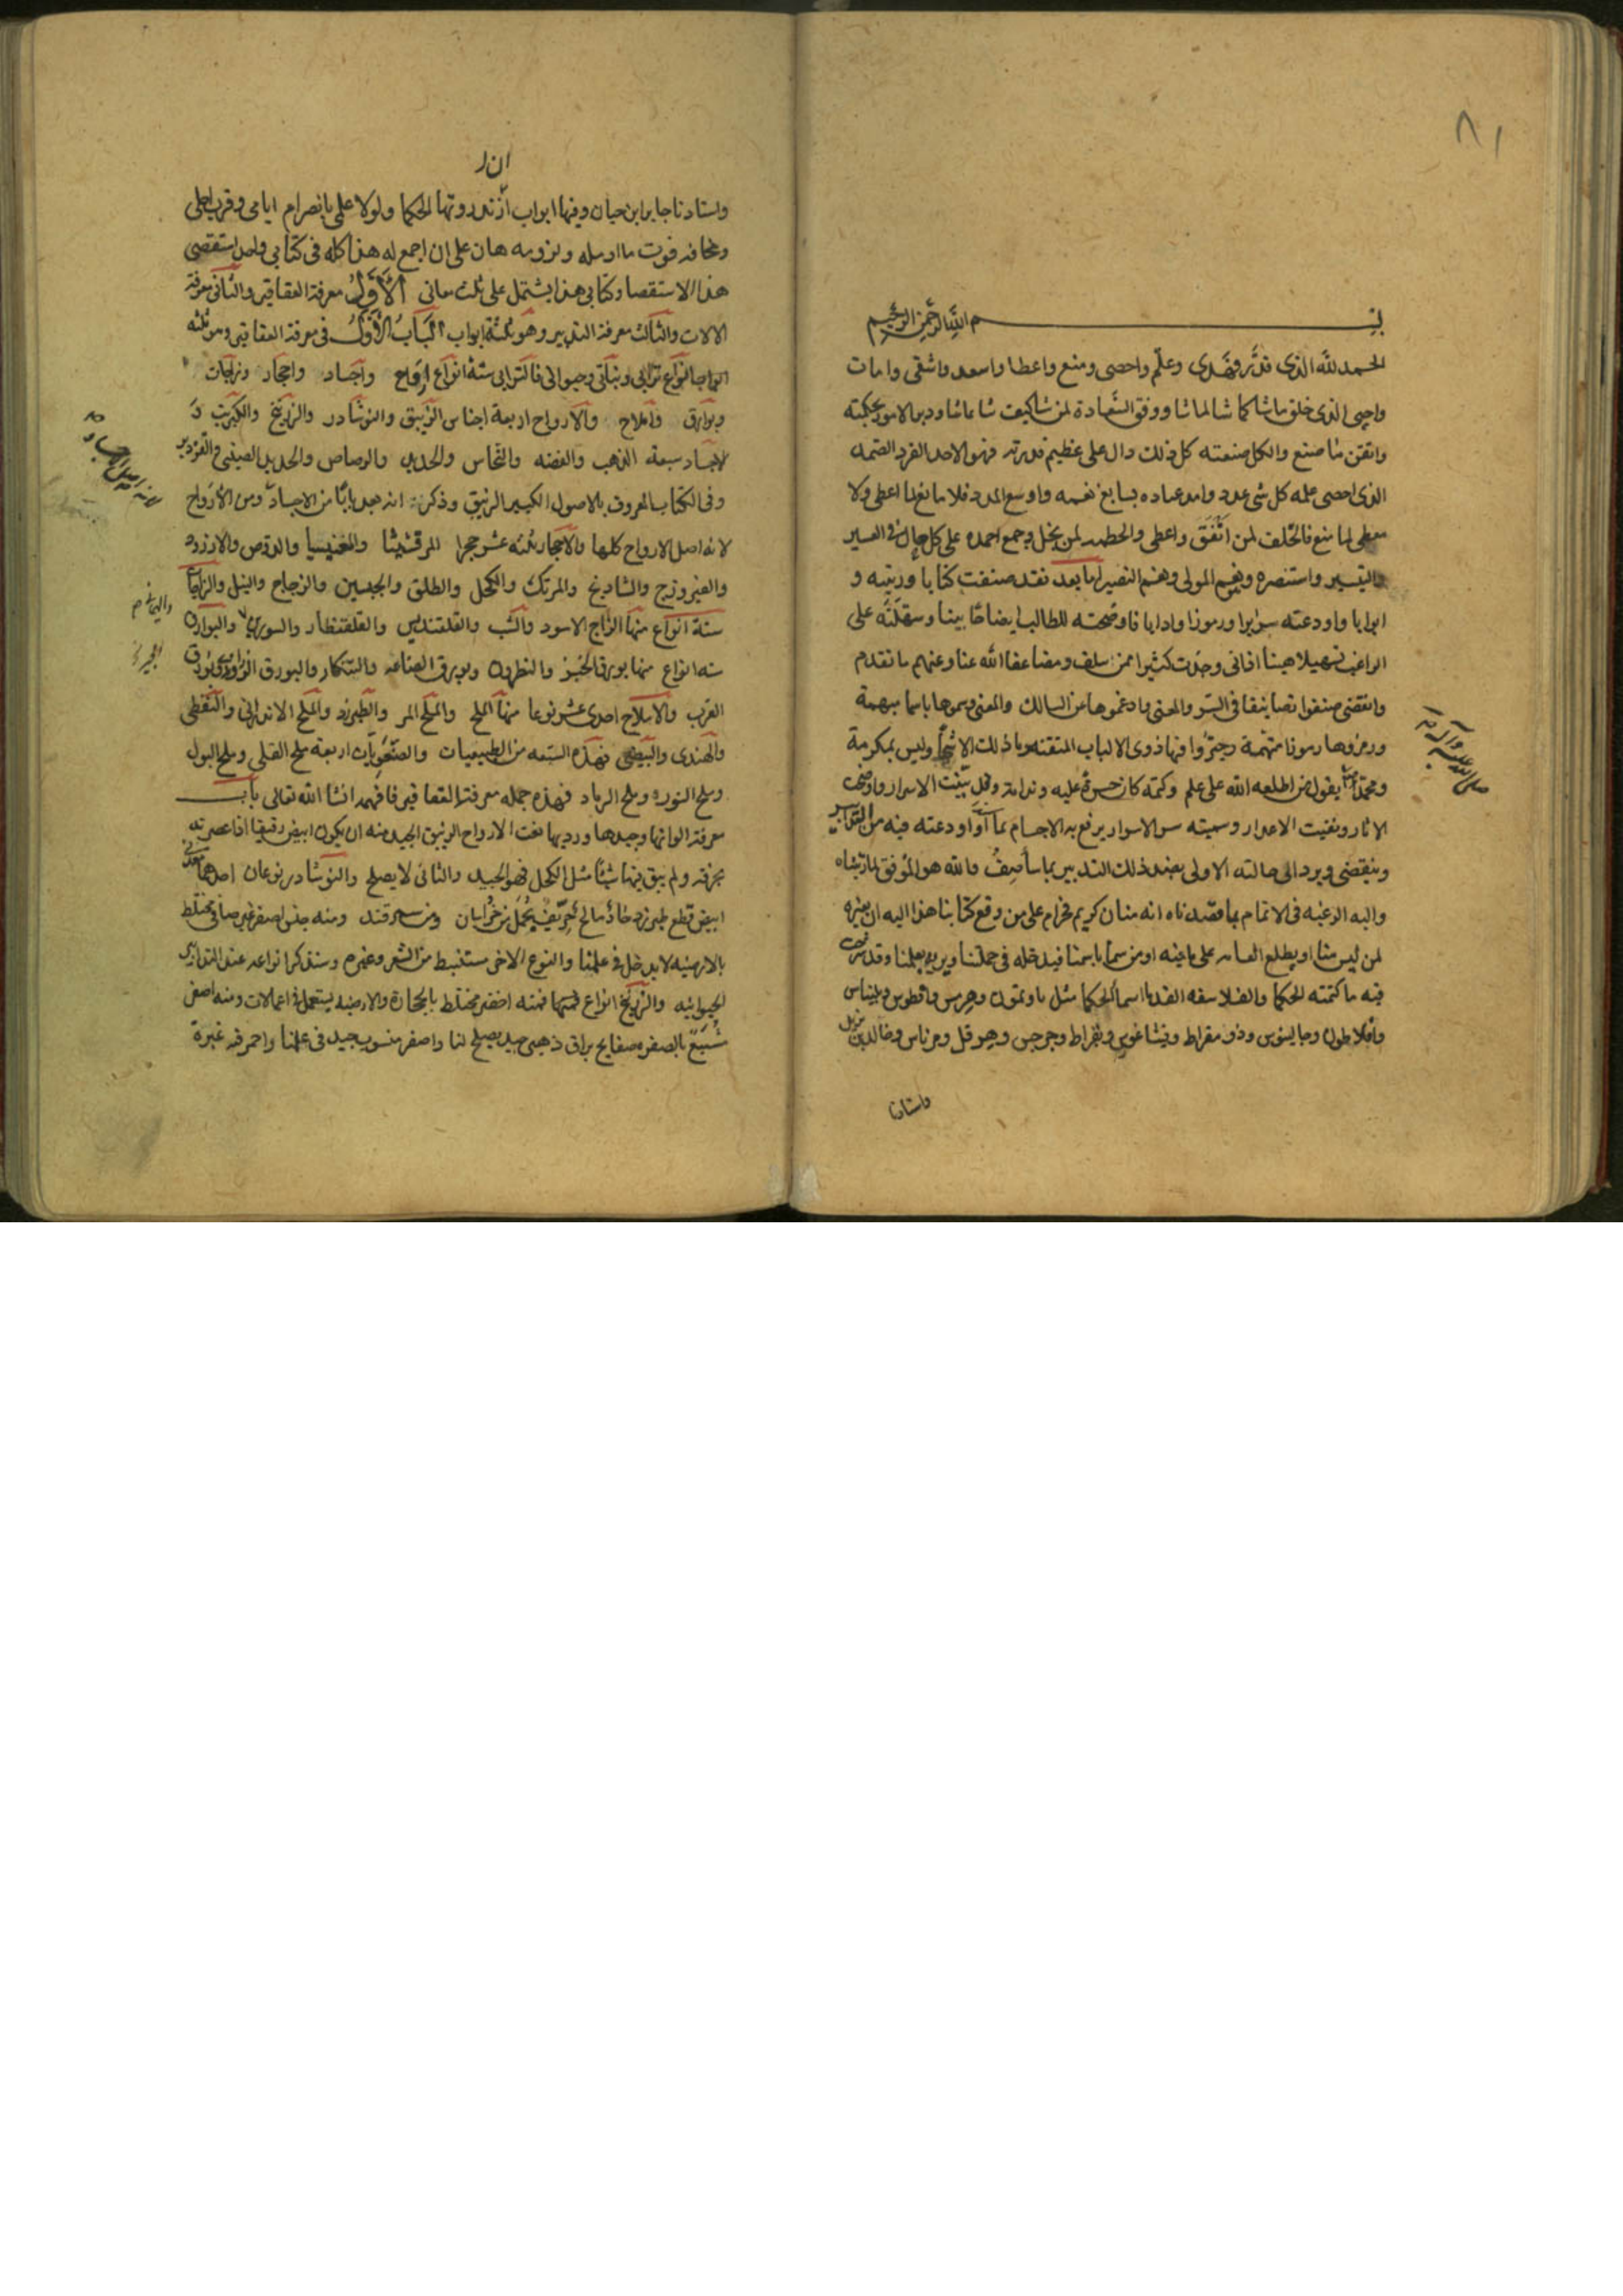 ٨١
بسم الله الرحمن الرحيم
الحمد لله الذى قدّر وهَدى وعلّم واحصى ومنع واعطا واسعد واشقى وامات
واحيى الذى خلق ماشا كما شا لما شا ووفق السّعادة لمن شا كيف شا ودبر الامور بحكمته
واتقن ما صنع والكل صنعته كل ذلك دال على عظيم قدرته فهو الاحد الفرد الصمد
الذى احصى علمه كل شى عدد وامد عباده بسابغ نعمه واوسع المدد فلا مانع لما اعطى ولا
معطى لما منع فالخلف لمن انفق واعطى والحطمه لمن بخل وجمع احمده على كل حال فى العسير
واليسير واستنصره ونعم المولى ونعم النصير اما بعد فقد صنفت كتابا ورتبته و
ابوابا واودعته سرايرا ورموزا وادابا فاوضحته للطالب ايضاحًا بينا وسهلته على
الراغب تسهيلا هينا فانى وجدت كثيرا ممن سلف ومضا عفا الله عنا وعنهم ما تقدم
وانقضى صنفوا تصانيفا فى السّر والمعنى وادغموها من السالك والمعنى وسموها باسما مبهمة
ورمزوها رموزا
يقول من اطلعه الله على علم وكتمه كان حسرة عليه وندامة وقد بيّنت الاسرار واوضحت
الاثار ونفيت الاعذار وسميته سر الاسرار يرفع به الاجسام بما اودعته فيه من التدابير
وينقضى ويرد الى حالته الاولى بضد ذلك التدبير بما ساصِفُ والله هو الموفق لما نشاه
واليه الرغبه فى الاتمام بما قصدناه انه منان كريم فحرام على من وقع كتابنا هذا اليه ان يعيره
لمن ليس منا او يطلع العامه على ما فيه او من سما باسمنا فيدخله فى جملتنا
فيه ما كتمته الحكما والفلاسفه القدما اسما الحكما مثل وهرمس
وافلاطون وجالينوس وذو مقراط وفيثاغورس وبقراط وجرجس وهرقل وخالد بن يزيد
واستادنا
صلى الله عليه وآله
واستادنا جابر ابن حيان وفيها ابواب الحكما ولولا علمى بانصرام ايامى وقرب اجلى
ومخافه فوت ما اومله ولزومه هان على ان اجمع له هذا كله فى كتابى واحد استقصى
هذا الاستقصا وكتابى هذا يشتمل على ثلث معانى الأوَّلُ معرفة العقاقير والثانى معرفة
الالات والثالث معرفة التدبير وهو ثلثة ابواب البابُ الأوّلُ فى معرفة العقاقير وهو ثلثه
انواع ترابى ونباتى وحيوانى فالترابى ستة انواع ارواح واجساد واحجار وزاجات
وبوارق واملاح والارواح اربعة اجناس الزيبق والنوشادر والزرنيخ والكبريت و
لاجساد سبعة الذهب والفضه والنحاس والحديد والرصاص والحديد الصينى والقزدير
وفى الكتاب المعروف بالاصول الكبير الزيبق وذكر انه يعد بابًا من الاجساد ومن الارواح
لانه اصل الارواح كلها والاحجار ثلثه عشر حجرا المرقشيثا والمغنيسيا والدوص واللازورد
والفيروزج والشادنج والمرتك والكحل والطلق والجبسين والزجاج والنيل والزاجات
ستة انواع منها الزاج الاسود والشب والقلقنديس والقلقنطار والسورى والبوارق
سته انواع منها بورق الخبز والنطرون وبورق الصناعه والتنكار والبورق الزراوندى وبورق
الغرب والاملاح احدى عشر نوعا منها الملح والملح المر والطبرزد والملح الاندرانى والنفطى
والهندى والبيضى فهذه السبعه من الطبيعيات والصنعويات اربعة ملح القلى وملح البول
وملح النوره وملح الرماد فهذه جمله معرفة العقاقير فافهمه انشا الله تعالى باب
معرفة الوانها وجيدها ورديها نعت الارواح الزيبق الجيد منه ان يكون ابيض رقيقا اذا عصرته
بخرقه ولم يبق فيها شيئًا مثل الكحل فهو الجيد والثانى لا يصلح والنوشادر نوعان احدهما معدنى
ابيض قطع طبرزد حاد مالح حرّيف يحمل من خراسان ومن سمرقند ومنه جنس اصفر غير صافى مختلط
بالارضيه لا يدخل فى علمنا والنوع الاخر مستنبط من الشعر وغيره وسنذكر انواعه عند التدابير
الحيوانيه والزرنيخ انواع فمنه اخضر مختلط بالحجارة والارضيه يستعمل فى اعمالات ومنه اصفر
مُشبَع بالصفره صفايح براق ذهبى جيد يصلح لنا واصفر منسوب جيد فى علمنا واحمر فيه غبرة